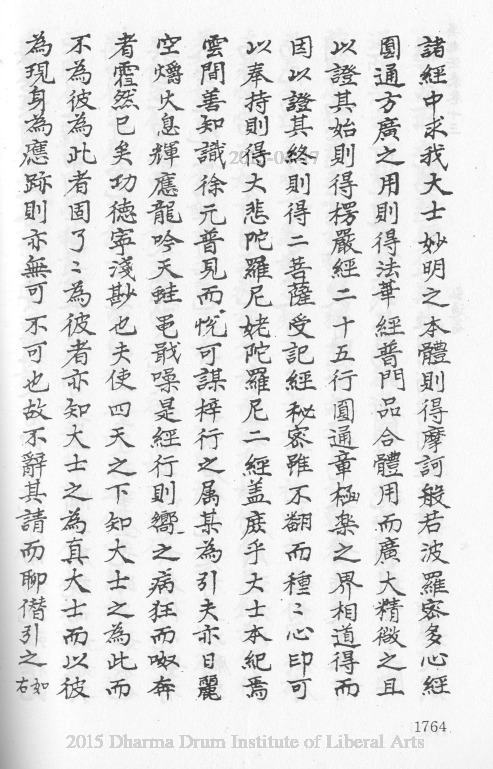 諸經中求我大士妙明之本體則得摩訶般若波羅蜜多心經
圓通方廣之用則得法華經普門品合體用而廣大精微之且
以證其始則得楞嚴經二十五行圓通章極樂之界相道得而
因以證其終則得二菩薩受記經秘密雖不翻而種〻心印可
以奉持則得大悲陀羅尼姥陀羅尼二經盖庻乎大士本紀焉
雲間善知識徐元普見而恱可謀梓行之属某為引夫亦日麗
空爝火息輝應龍吟天蛙黽戢噪是經行則嚮之病狂而呶奔
者霍然已矣功德寧淺尠也夫使四天之下知大士之為此而
不為彼為此者固了〻為彼者亦知大士之為真大士而以彼
為現身為應跡則亦無可不可也故不辭其請而聊僣引之如右
1764
2015 Dharma Drum Institute of Liberal Arts